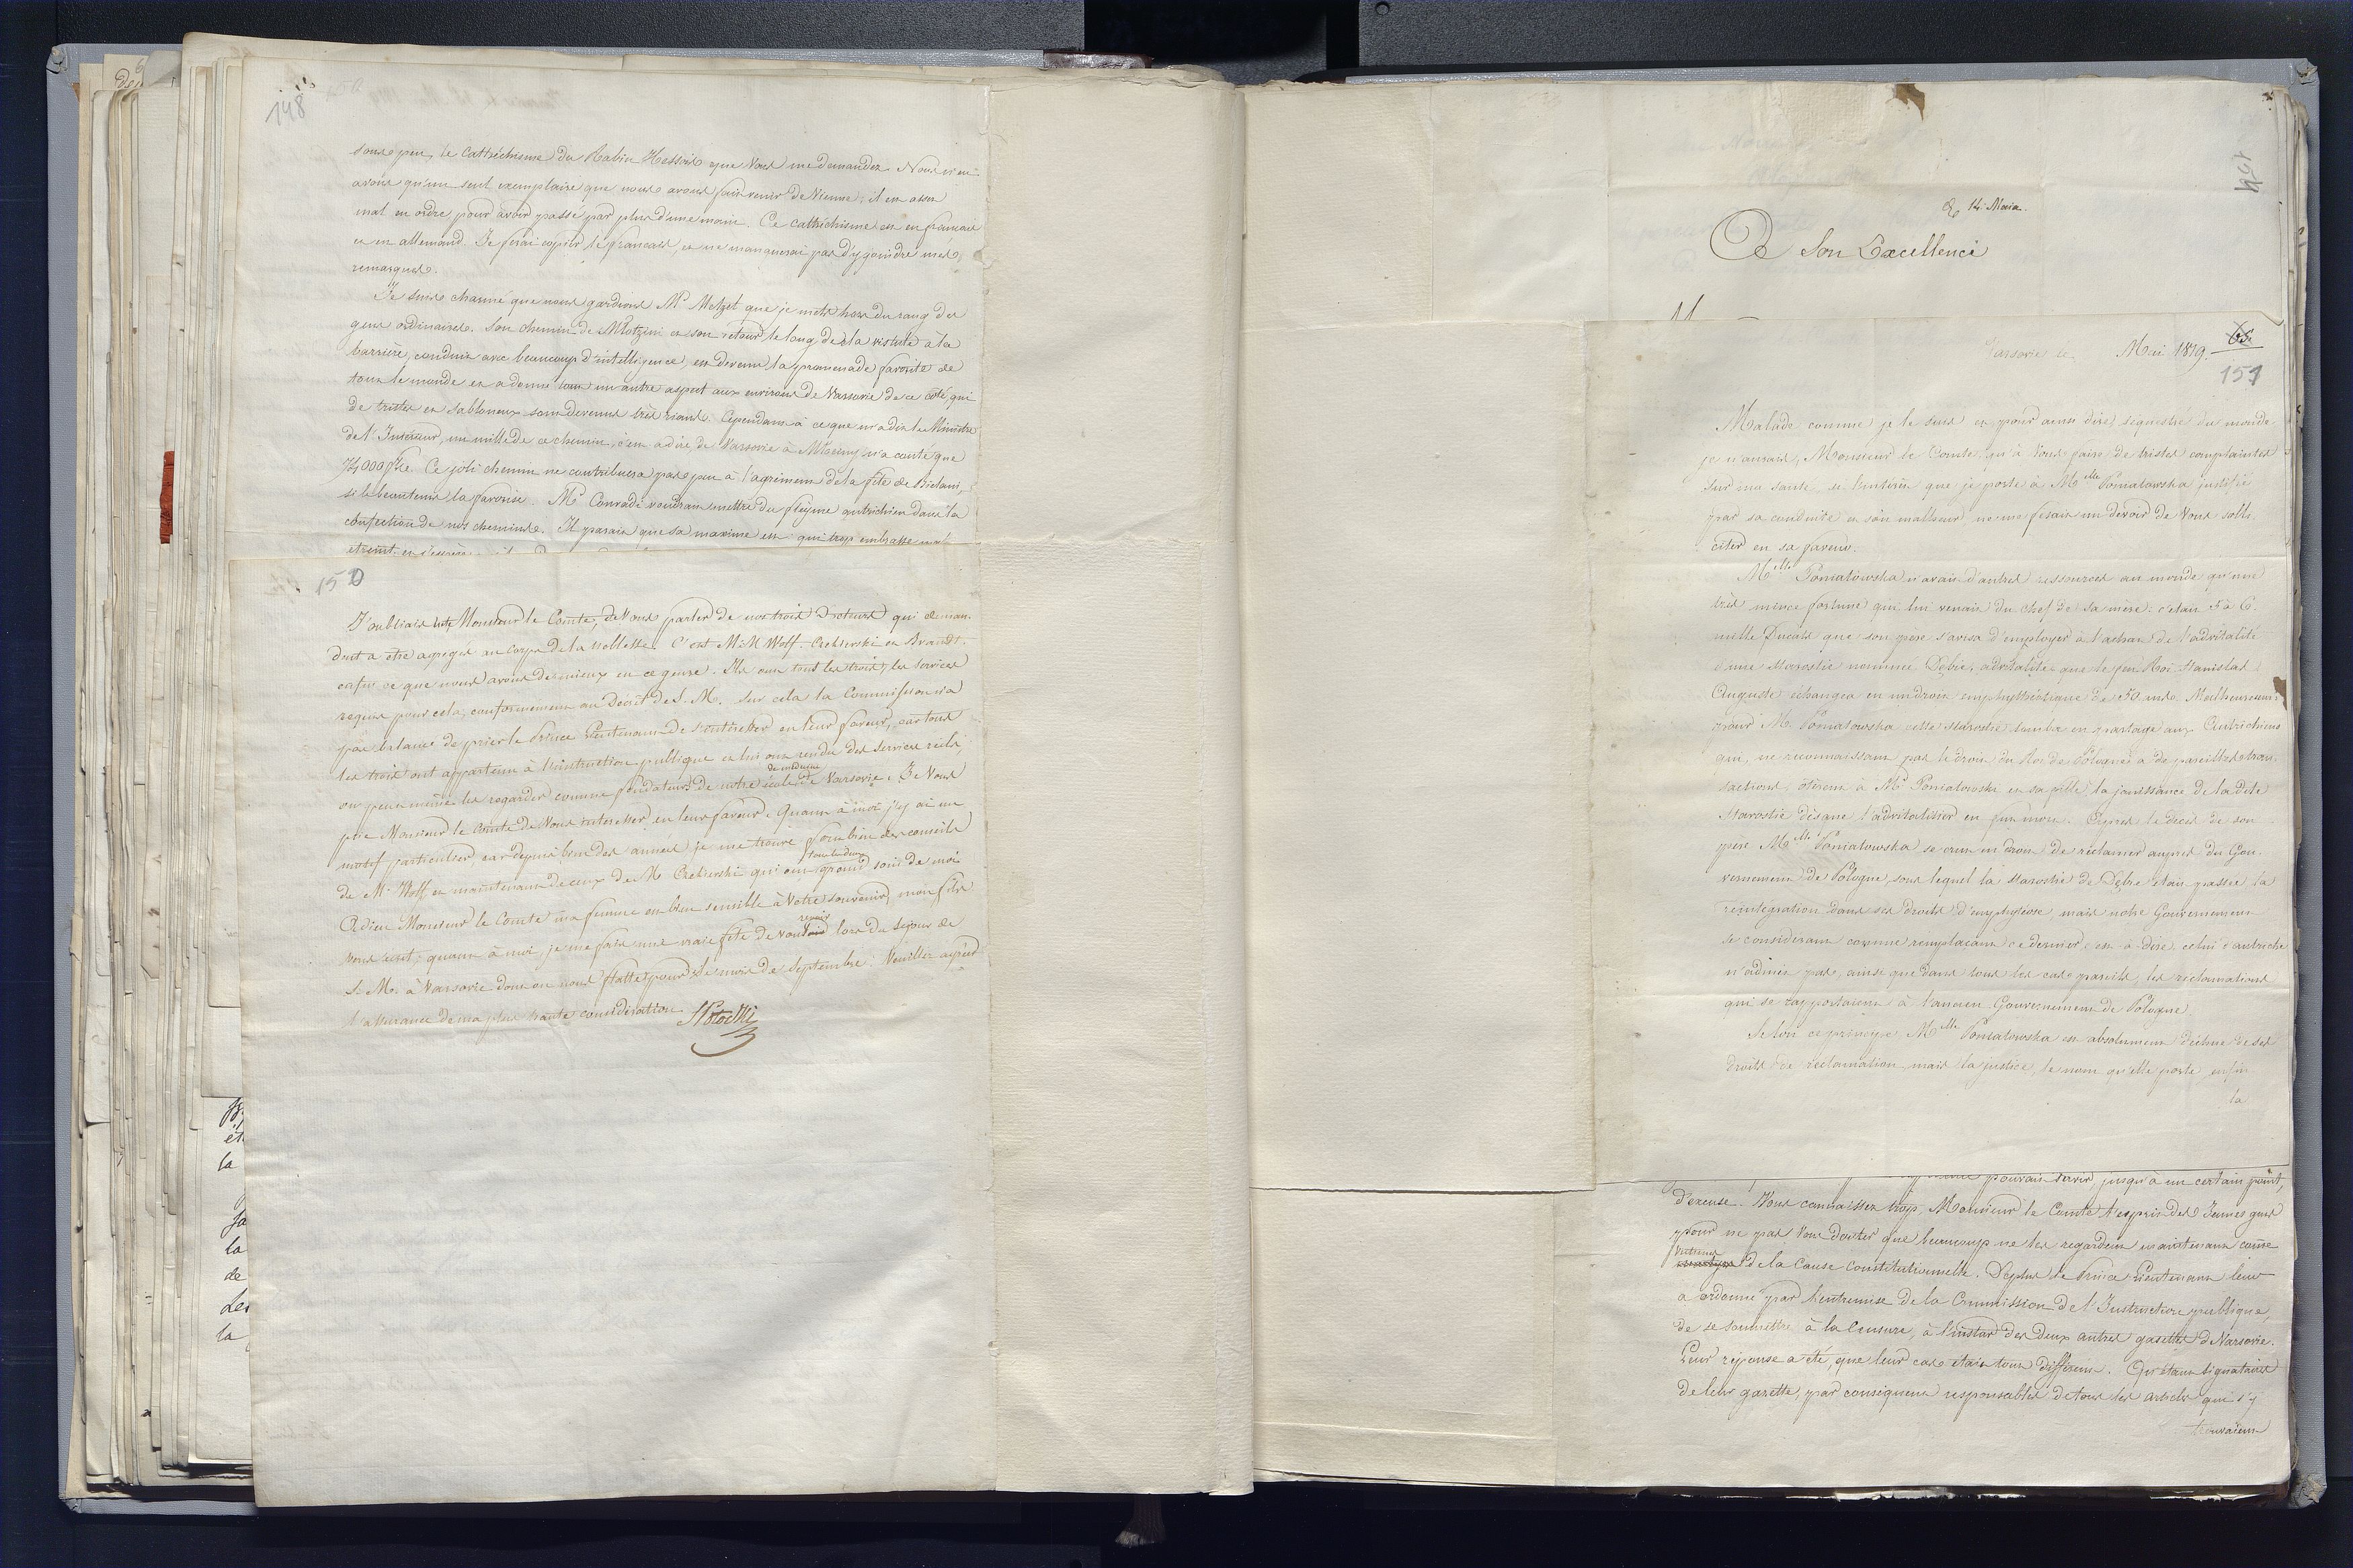 148
sous peu, le Cattéchisme du Rabin Hessois que Vous me demandez. Nous n'en
avons qu'un seul exemplaire que nous avons fait venir de Vienne: il est assez
mal en ordre pour avoir passé par plus d'une main. Ce cattéchisme est en français
et en allemand. Je ferai copier le français, et ne manquerai pas d'y joindre mes
remarques.
Je suis charmé que nous gardions Mr Metzel que je mets hors du rang des
gens ordinaires. Son chemin de Mlotziny et son retour le long de la vistule à la
barrière, conduit avec beaucoup d'intelligence, est devenu la promenade favorite de
tout le monde et a donné un autre aspect aux environs de Varsovie de ce coté, qui
de tristes et sabloneux sont devenus très riants. Cependant à ce que m'a dit le Ministre
de l'Intérieur, un mille de ce chemin, c'est a dire, de Varsovie à n'a couté que
74000 Ce joli chemin ne contribuera pas peu à l'agrément de la fête de Bielani,
si le beau tems la favorise. Mr Conradi voudrait mettre du flegme autrichien dans la
confection de nos chemins. Il parait que sa maxime est qui trop embrasse mal
etreint
150
J'oubliais Monsieur le Comte, de Vous parler de nos trois Docteurs qui deman-
dent a etre agregés au Corps de la noblesse. C'est MM Wolf. Czekierski et Brandt.
enfin ce que nous avons de mieux en ce genre. Ils ont tous les trois, les services
requis pour cela, conformement au décret de S. M. Sur cela la Commission n'a
pas balancé de prier le Prince Lieutenant de s'intéresser en leur faveur, car tous
les trois ont appartenu à l'instruction publique et lui ont rendu des services réels,
on peut même les regarder comme fondateurs de notre école de Varsovie. Je Vous
de médecine
prie Monsieur le Comte de Vous intéresser en leur faveur. Quant à moi j'y ai un
motif particulier, car depuis bien des années je me trouve fort bien des conseils
de Mr Wolf et maintenant de ceux de M. Czekierski qui ont grand soin de moi
tous les deux
Adieu Monsieur le Comte ma femme est bien sensible à Votre souvenir, mon fils
Vous écrit; quant à moi je me fais une vraie fête de Vous lors du séjour de
revoir
S. M. à Varsovie dont on nous flatte pour le mois de Septembre. Veuillez agréer
l'assurance de ma plus haute considération SPotocki
154
14. Maia
A Son Excellence
M
Varsovie le Mai 1819.
65
151
Malade comme je le suis et pour ainsi dire, séquestré du monde
je n'aurais, Monsieur le Comte, qu'à Vous faire de tristes complaintes
sur ma santé, si l'intérêt que je porte à Melle Poniatowska justifié
par sa conduite et son malheur ne me fesait un devoir de Vous solli-
citer en sa faveur.
Melle Poniatowska n'avait d'autres ressources au monde qu'une
très mince fortune qui lui venait du chef de sa mère: c'était 5 à 6.
mille Ducats que son père s'avisa d'employer à l'achat de l'advitalité
d'une Starostie nommée Dębie, advitalité que le feu Roi Stanislas
Auguste échangea en un droit emphythéotique de 50 ans. Malheureuse-
pour M. Poniatowska cette Starostie tomba en partage aux Autrichiens
qui, ne reconnaissant pas le droit du Roi de Pologne à de pareilles tran-
sactions, ôterent à Mr Poniatowski et sa fille, la jouissance de la dite
Starostie dès que l'advitalitier en fut mort. Après le décès de son
père Melle Poniatowska se crut en droit de réclamer auprès du Gou-
vernement de Pologne, sous lequel la Starostie de Dębie était passée la
réintégration dans ses droits d'emphytéose, mais notre Gouvernement
se considérant comme remplaçant ce dernier c'est-à-dire, celui d'autriche
n'admit pas, ainsi que dans tous les cas pareils, les réclamations
qui se rapportaient à l'ancien Gouvernement de Pologne.
Selon ce principe Melle Poniatowska est absolument déchue de ses
droits de réclamation, mais la justice, le nom qu'elle porte enfin
la
pouvait servir jusqu'à un certain point,
d'excuse. Vous connaissez trop, Monsieur le Comte l'esprit des Jeunes gens
pour ne pas Vous douter que beaucoup ne les regardent maintenant come
Victimes
de la Cause Constitutionnelle. Deplus le Prince Lieutenant leur
a ordonné par l'entremise de la Commission de l'Instruction publique,
de se soumettre à la Censure, à l'instar des deux autres gazettes de Varsovie.
Leur réponse a été, que leur cas était tout différent. Qu'étant signataires
de leur gazette, par conséquent responsables de tous les articles qui s'y
trouvaient